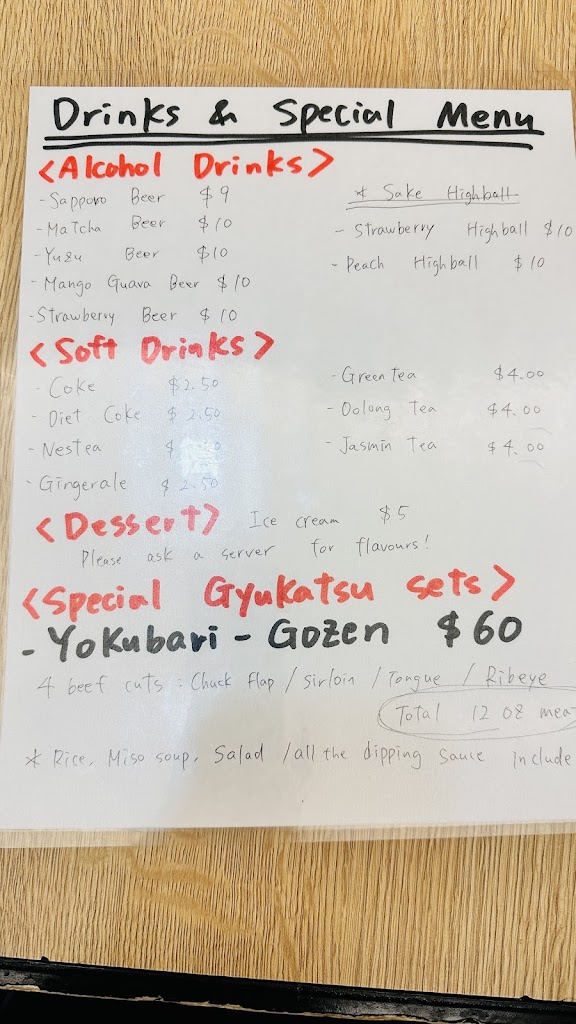 Drinks & Special Menu
<Alcohol Drinks>
- Sapporo Beer $9
- Matcha Beer $10
- Yuzu Beer $10
- Mango Guava Beer $10
- Strawberry Beer $10
* Sake Highball
- Strawberry Highball $10
- Peach Highball $10
<Soft Drinks>
- Coke $2.50
- Diet Coke $2.50
- Nestea $
- Gingerale $2.50
- Green tea $4.00
- Oolong Tea $4.00
- Jasmin Tea $4.00
<Dessert> Ice cream $5
Please ask a server for flavours!
<Special Gyukatsu sets>
- Yokubari - Gozen $60
4 beef cuts : Chuck flap / sirloin / Tongue / Ribeye
Total 12 oz mea
* Rice, Miso soup, Salad / all the dipping sauce include